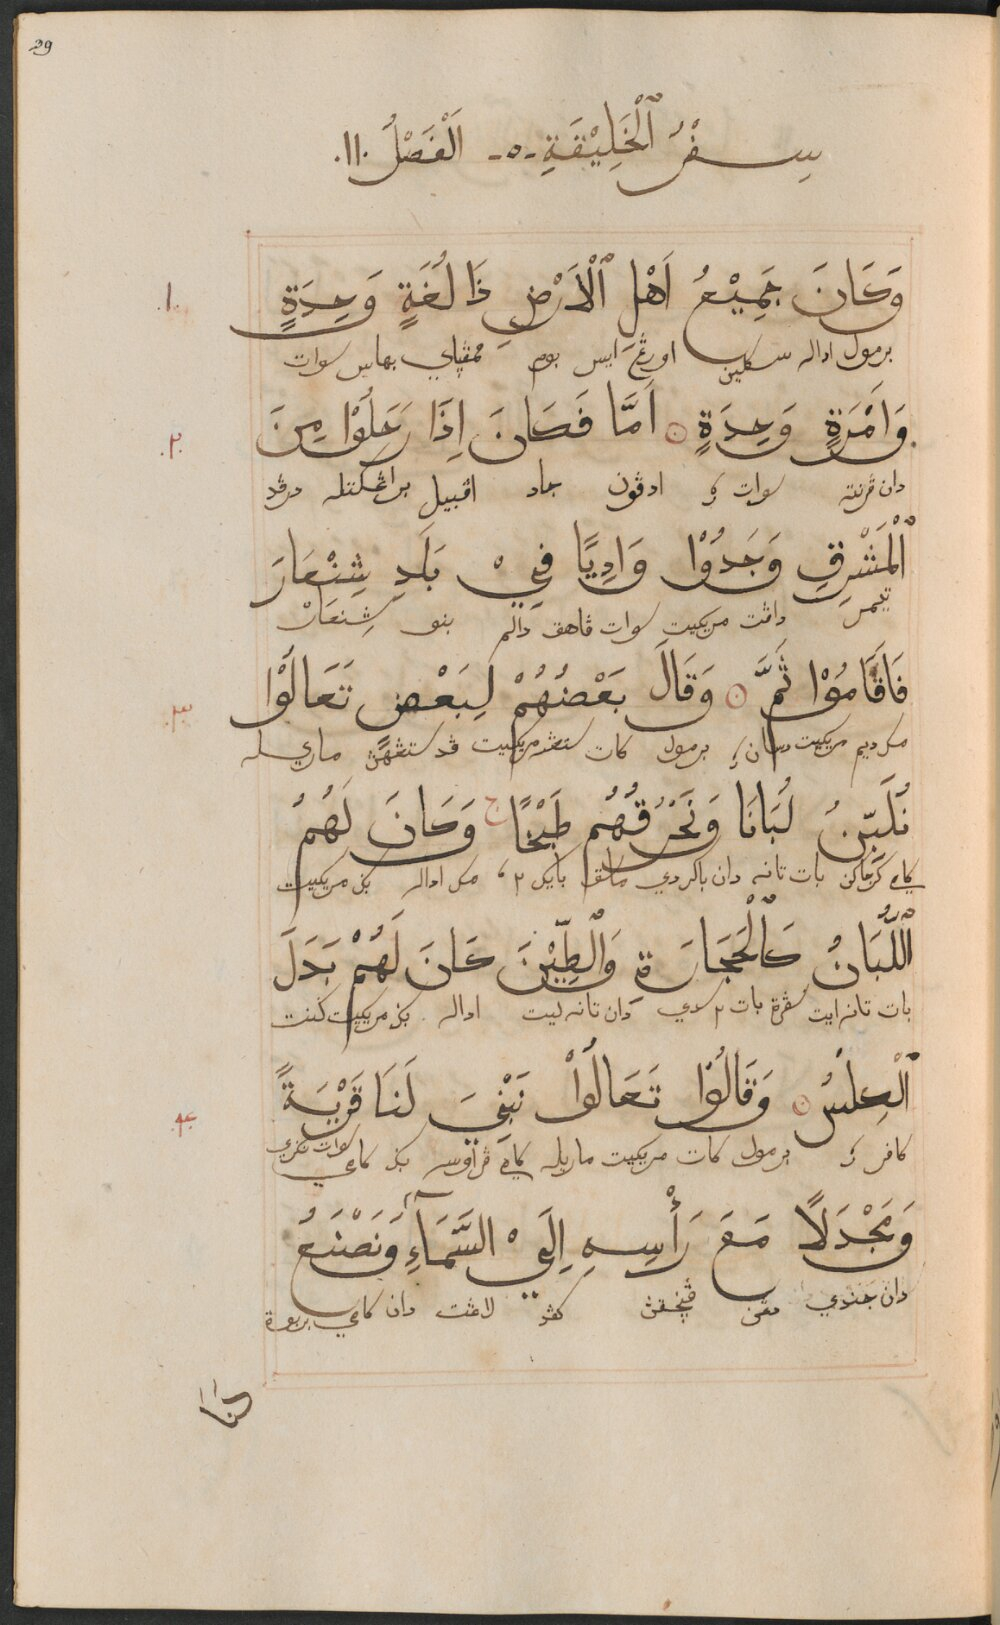 29
سِفْرُ ٱلْخَلِيْقَةِ -٥- اَلْفَصْلُ ١١.
١. وَكَانَ جَمِيْعُ اَهْلِ ٱلْاَرْضِ ذَا لُغَةٍ وَحِدَةٍ
برمول اداله سكلين اورڠ ايس بوم ممڤڽاي بهاس سوات
٢. وَاَمْرَةٍ وَحِدَةٍ ۝ اَمَّا فَكَانَ اِذَا رَحَلُوْا مِنَ
دان ڤرنته سوات ادڤون جاد اڤبيل براڠكتله درڤد
ٱلْمَشْرِقِ وَجَدُوْا وَادِيًا فِيْ بَلَدِ شِنْعَارَ
تيمر داڤت مريكيت سوات دالم بنو شِنعَارْ
٣. فَاَقَامُوْا ثَمَّ ۝ وَقَالَ بَعْضُهُمْ لِبَعْضٍ تَعَالَوْا
مك ديم مريكيت دسان برمول كات ستڠه مريكيت ڤد ستڠهڽ ماريله
نُلَبِّنُ لُبَانًا وَنَحْرُقُهُمْ طَبْخًا ج وَكَانَ لَهُمُ
كامي كرجاكن بات تانه دان باكردي ماسق بايك٢ مك اداله بݢ مريكيت
ٱللُّبَانُ كَٱلْحَجَارَةِ وَٱلْطِّيْنَ كَانَ لَهُمْ بَدَلَ
بات تانه ايت سڤرة بات٢ دان تانه ليت اداله بݢ مريكيت ݢنت
٤. ٱلْكِلْسُ ۝ وَقَالُوْا تَعَالُوْا نَبْنِيَ لَنَا قَرْيَةً
كافر برمول كات مريكيت ماريله كامي ڤراوسه بݢ كامي سوات نݢري
وَمَجْدَلًا مَعَ رَأْسِهِ اِلَىْ السَّمَآءِ وَنَصْنَعُ
دان دڠن ڤنچقڽ كڤد لاڠت دان كامي بربوة
لَنَا